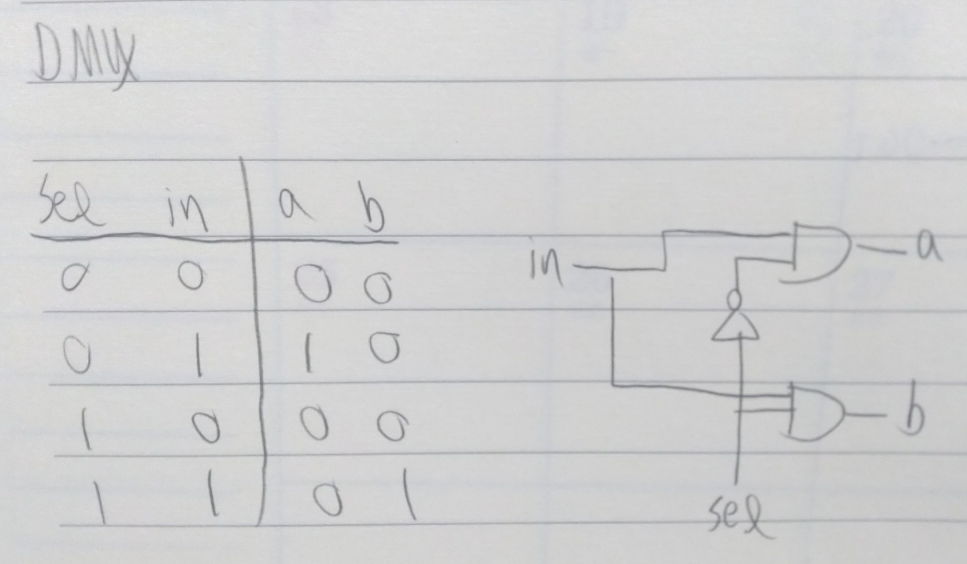 DMUX
sel in a b
0 0 0 0
0 1 1 0
1 0 0 0
1 1 0 1
in a
b
sel